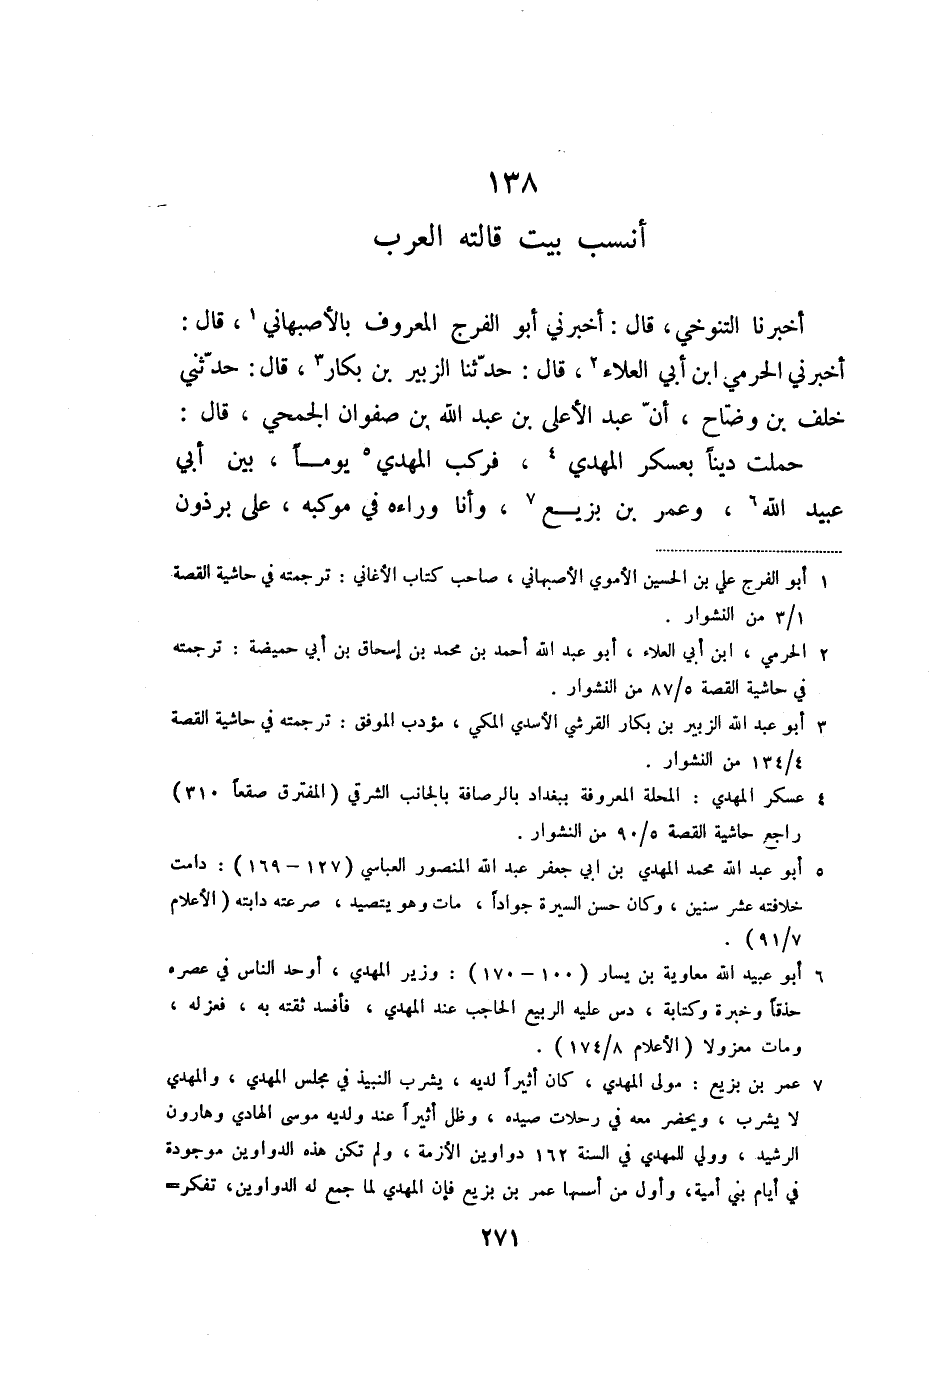 ١٣٨
أنسب بيت قالته العرب
أخبرنا التنوخي، قال : أخبرني أبو الفرج المعروف بالأصبهاني ١ ، قال :
أخبرني الحرمي ابن أبي العلاء ٢ ، قال : حدّثنا الزبير بن بكار ٣ ، قال : حدّثني
خلف بن وضّاح ، أنّ عبد الأعلى بن عبد الله بن صفوان الجمحي ، قال :
حملت ديناً بعسكر المهدي ٤ ، فركب المهدي ٥ يومــاً ، بين أبي
عبيد الله ٦ ، وعمر بن بزيــع ٧ ، وأنا وراءه في موكبه ، على برذون
١ أبو الفرج علي بن الحسين الأموي الأصبهاني ، صاحب كتاب الأغاني : ترجمته في حاشية القصة
٣/١ من النشوار .
٢ الحرمي ، ابن أبي العلاء ، أبو عبد الله أحمد بن محمد بن إسحاق بن أبي حميضة : ترجمته
في حاشية القصة ٨٧/٥ من النشوار .
٣ أبو عبد الله الزبير بن بكار القرشي الأسدي المكي ، مؤدب الموفق : ترجمته في حاشية القصة
١٣٤/٤ من النشوار .
٤ عسكر المهدي : المحلة المعروفة ببغداد بالرصافة بالجانب الشرقي (المفترق صقعاً ٣١٠)
راجع حاشية القصة ٩٠/٥ من النشوار .
٥ أبو عبد الله محمد المهدي بن ابي جعفر عبد الله المنصور العباسي (١٢٧ – ١٦٩) : دامت
خلافته عشر سنين ، وكان حسن السيرة جواداً ، مات وهو يتصيد ، صرعته دابته (الأعلام
٩١/٧) .
٦ أبو عبيد الله معاوية بن يسار (١٠٠ – ١٧٠) : وزير المهدي ، أوحد الناس في عصره
حذقاً وخبرة وكتابة ، دس عليه الربيع الحاجب عند المهدي ، فأفسد ثقته به ، فعزله ،
ومات معزولا (الأعلام ١٧٤/٨) .
٧ عمر بن بزيع : مولى المهدي ، كان أثيراً لديه ، يشرب النبيذ في مجلس المهدي ، والمهدي
لا يشرب ، ويحضر معه في رحلات صيده ، وظل أثيراً عند ولديه موسى الهادي وهارون
الرشيد ، وولي للمهدي في السنة ١٦٢ دواوين الأزمة ، ولم تكن هذه الدواوين موجودة
في أيام بني أمية، وأول من أسسها عمر بن بزيع فإن المهدي لما جمع له الدواوين، تفكر=
٢٧١